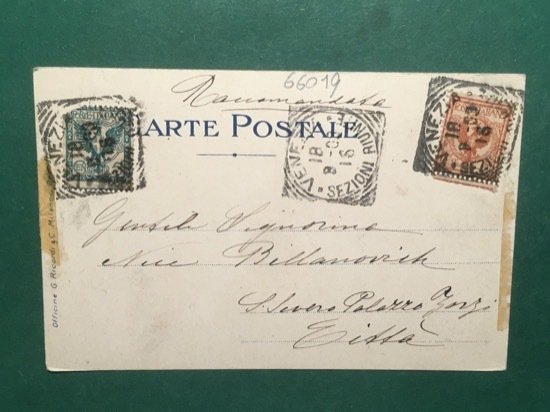 66019
Raccomandata
CARTE POSTALE
VENEZIA
SEZIONI RIUNITE
18
8 - 03
16
Gentile Signorina
Nice Billanovich
S. Severo Palazzo Zorzi
Città
Officine G. Ricordi & C. Milano